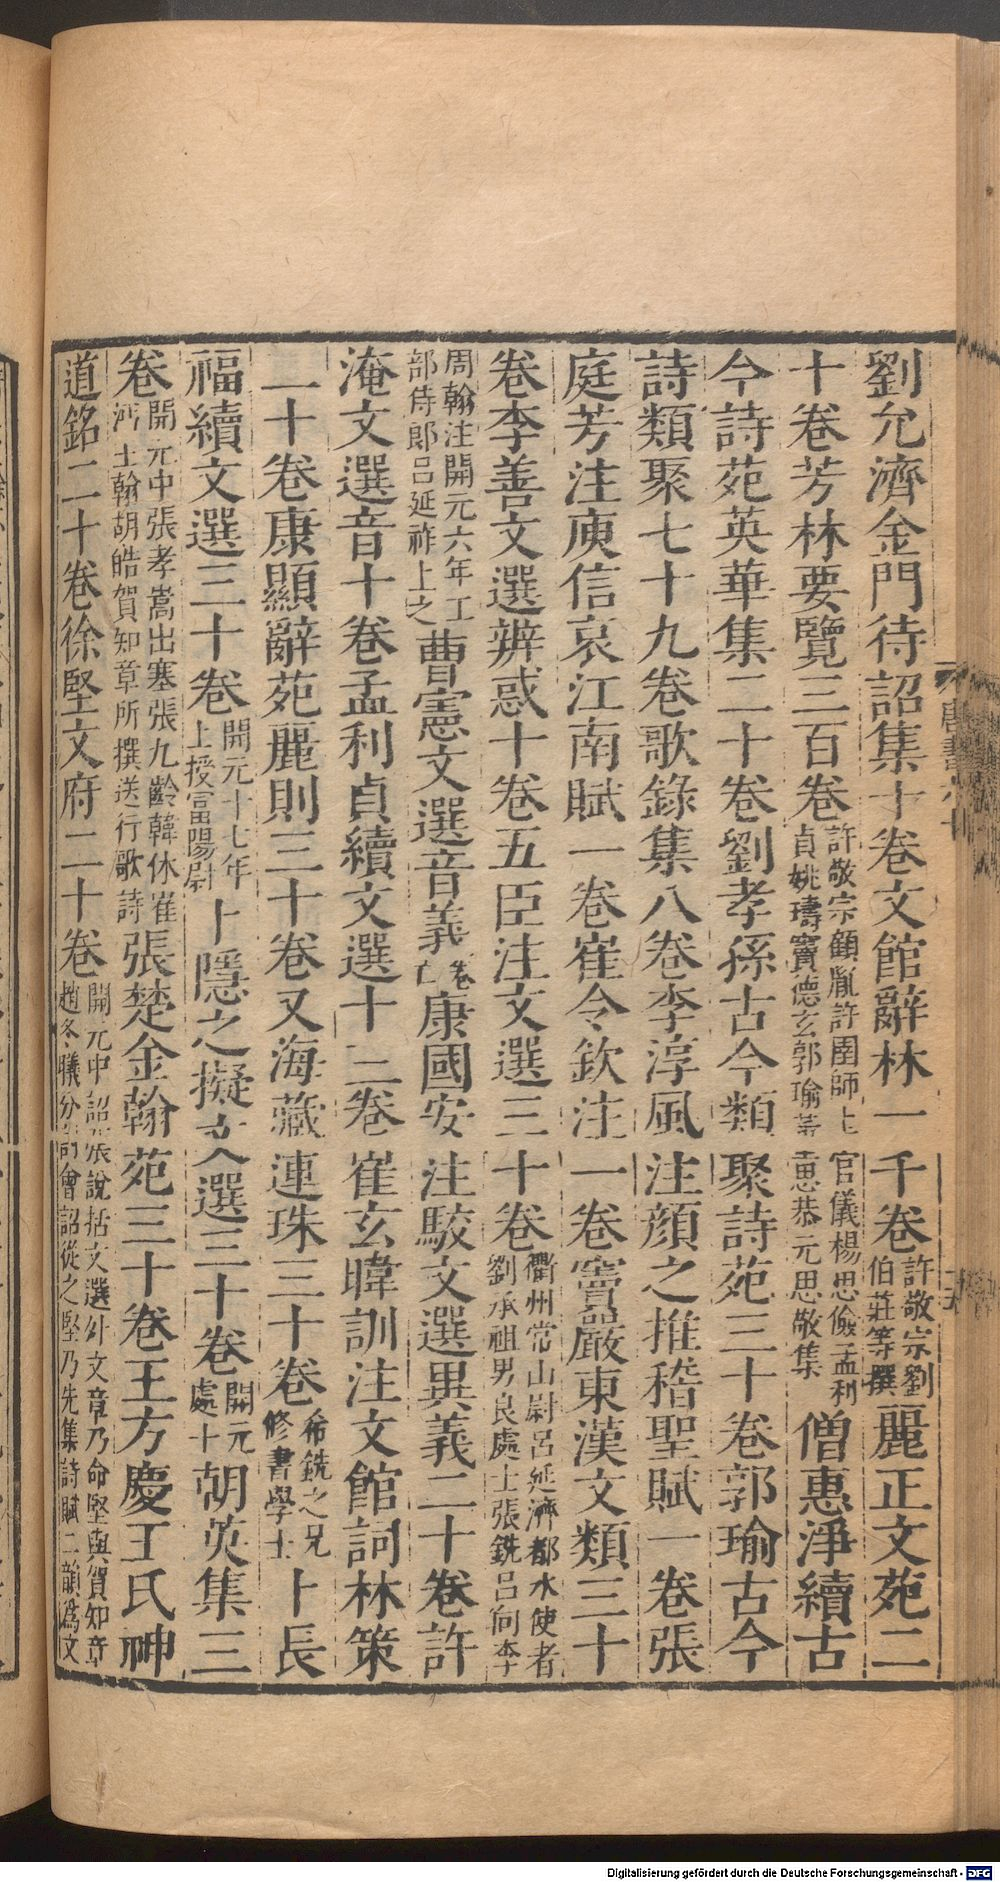 劉允濟金門待詔集十卷文館辭林一千卷許敬宗劉伯莊等撰麗正文苑二
十卷芳林要覽三百卷許敬宗顧胤許圉師上官儀楊思儉孟利貞姚璹竇德玄郭瑜董思恭元思敬集僧惠淨續古
今詩苑英華集二十卷劉孝孫古今類聚詩苑三十卷郭瑜古今
詩類聚七十九卷歌錄集八卷李淳風注顏之推稽聖賦一卷張
庭芳注庾信哀江南賦一卷崔令欽注一卷竇嚴東漢文類三十
卷李善文選辨惑十卷五臣注文選三十卷衢州常山尉呂延濟都水使者劉承祖男良處士張銑呂向李
周翰注開元六年工部侍郎呂延祚上之曹憲文選音義卷亡康國安注駁文選異義二十卷許
淹文選音十卷孟利貞續文選十三卷崔玄暐訓注文館詞林策
一十卷康顯辭苑麗則三十卷又海藏連珠三十卷希銑之兄修書學士卜長
福續文選三十卷開元十七年上授富陽尉卜隱之擬文選三十卷開元處士胡英集三
卷開元中張孝嵩出塞張九齡韓休崔沔王翰胡皓賀知章所撰送行歌詩張楚金翰苑三十卷王方慶王氏神
道銘二十卷徐堅文府二十卷開元中詔張說括文選外文章乃命堅與賀知章趙冬曦分討會詔從之堅乃先集詩賦二韻爲文
Digitalisierung gefördert durch die Deutsche Forschungsgemeinschaft - DFG